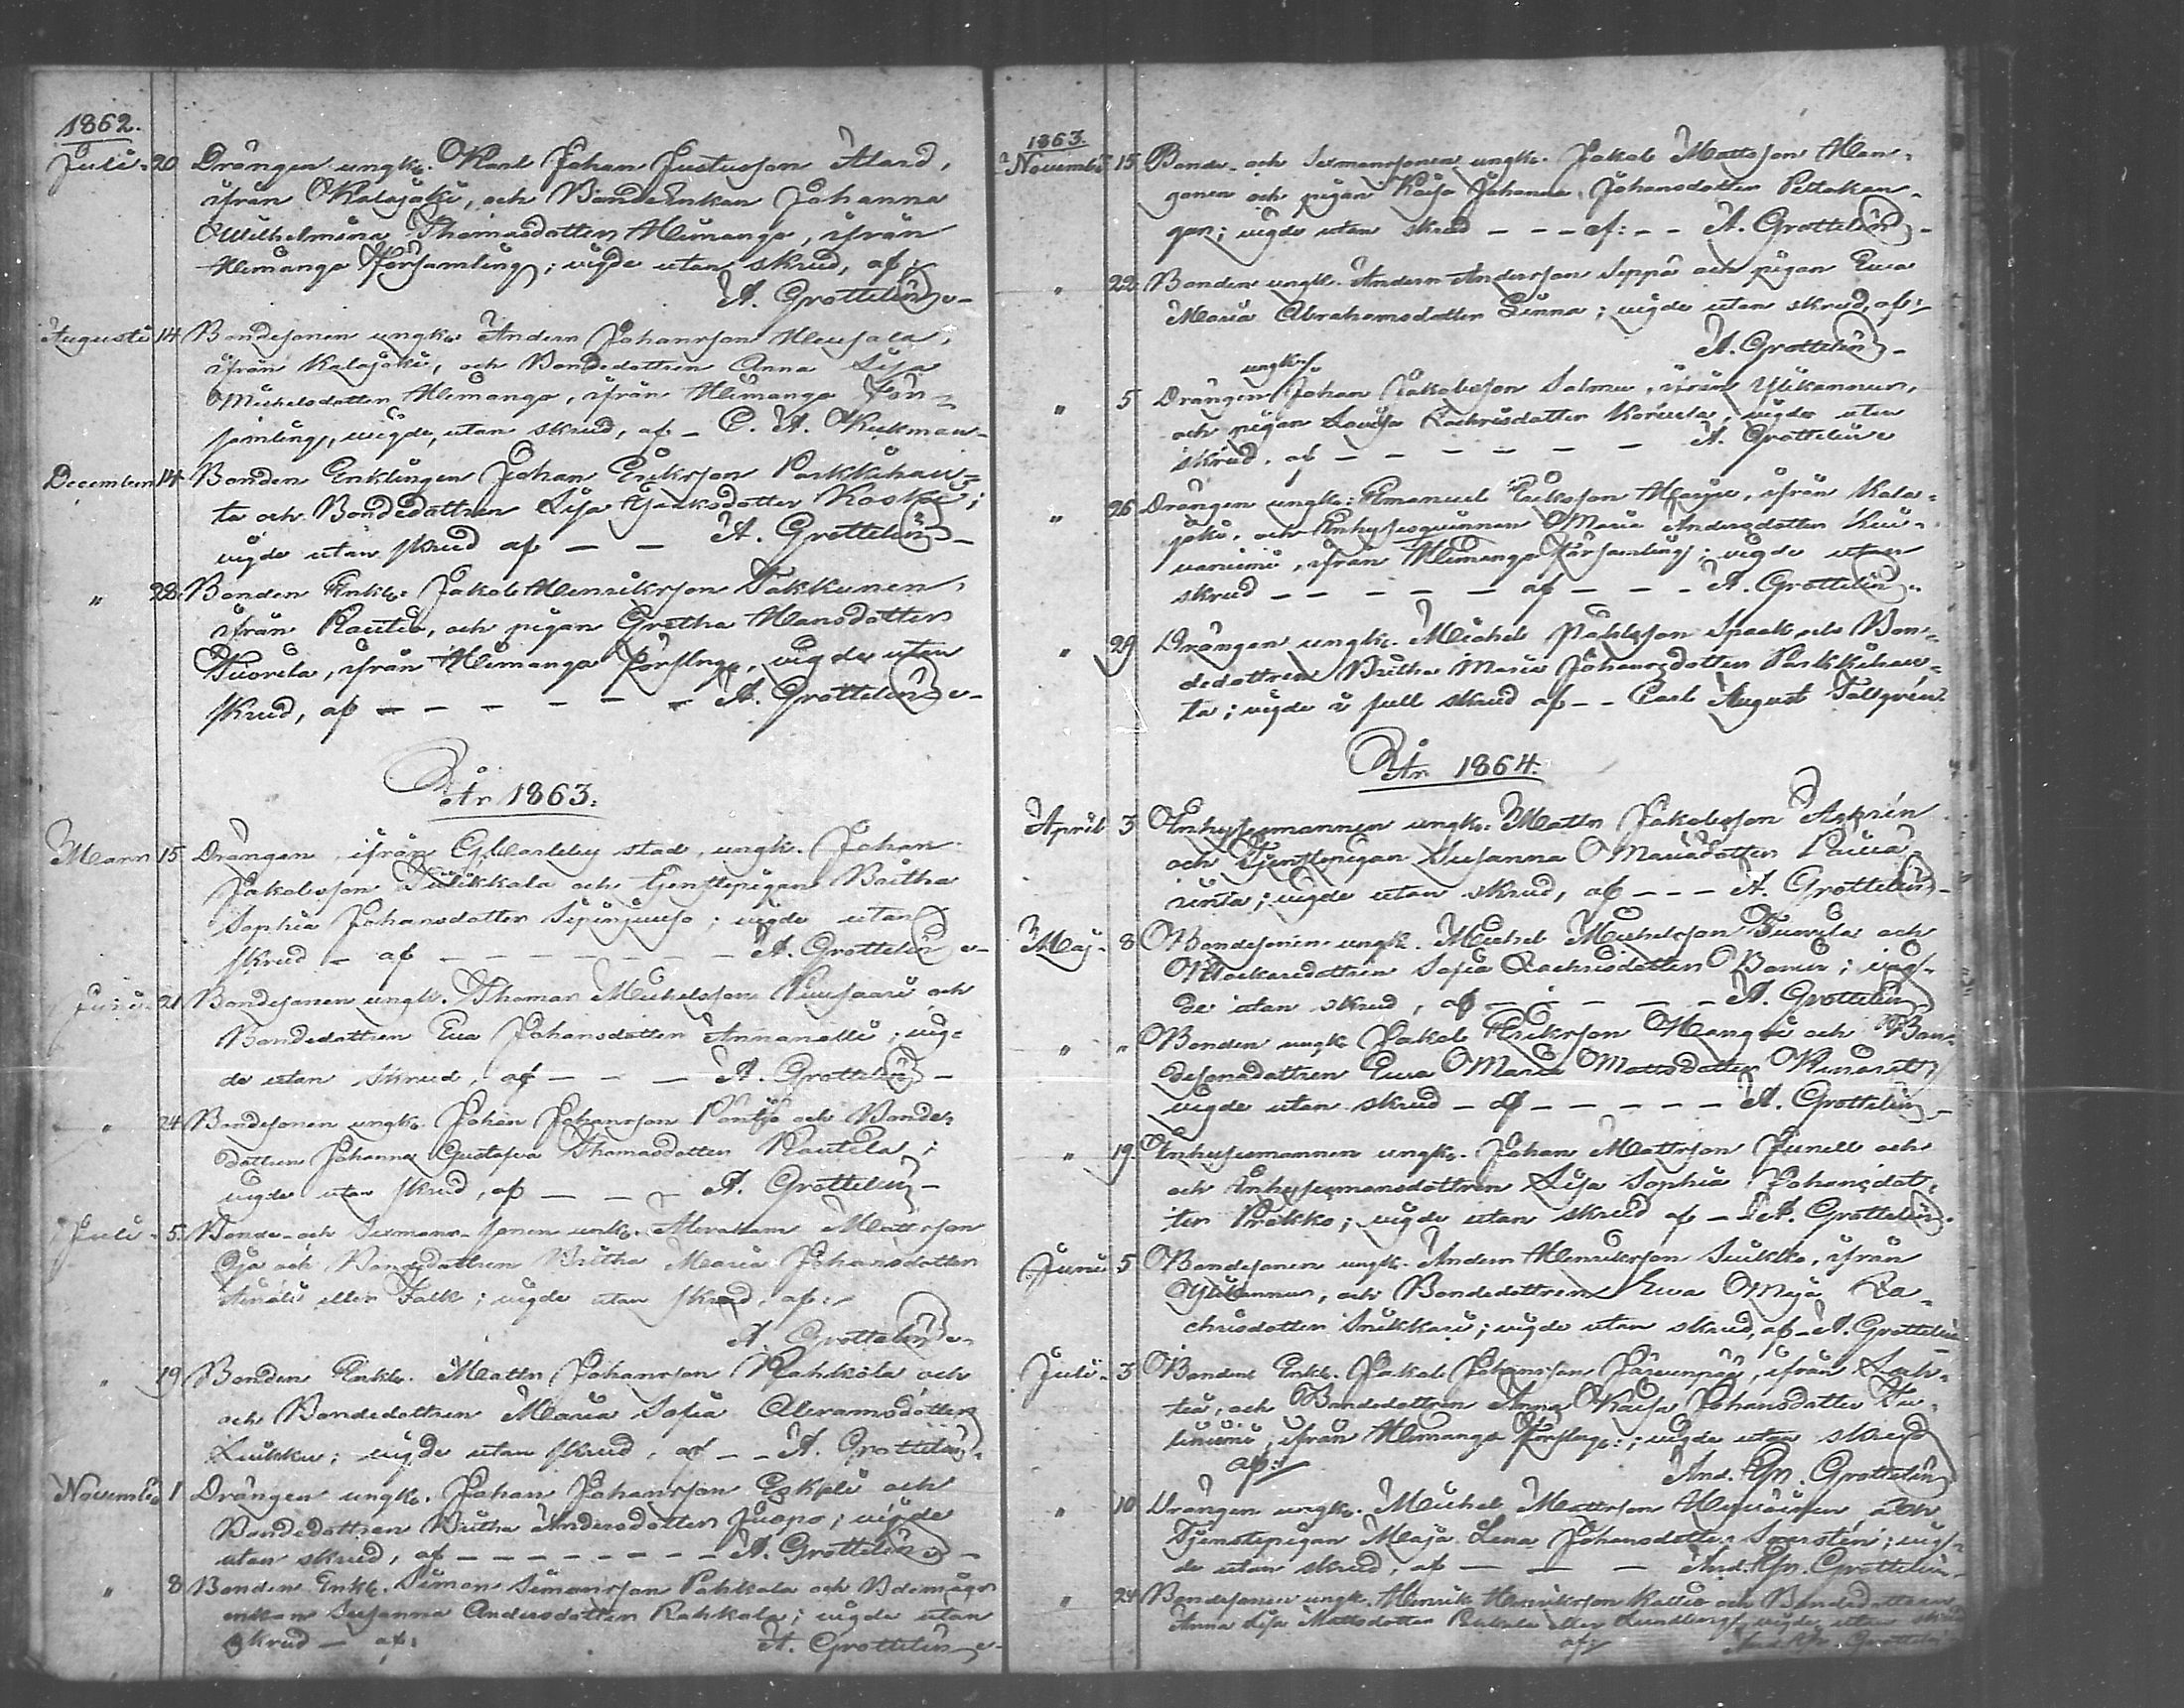 1862.
Juli. 20 Drängen ungk. Karl Johan Justusson Åland,
ifrån Kalajoki, och Bonde Enkan Johanna
Wilhelmina Thomasdotter Himango, ifrån
Himango Församling; vigde utan skrud, af:
A. Grottelin
Augusti 14 Bondesonen ungk. Anders Johansson
ifrån Kalajoki, och Bondedottren Anna Lisa
Michelsdotter Himango, ifrån Himango För-
samling, vigde, utan skrud, af - C. A.
December 14 Bonden Enklingen Johan Eriksson Parkkihau-
ta och Bondedottren Lisa Koski;
vigde utan skrud af — — A. Grottelin
" 28. Bonden Enkl. Jakob Henriksson Takkunen,
ifrån Rautio, och pigan Gretha Hansdotter
Tuorila, ifrån Himango Förslg, vigde utan
skrud, af — — — — — — A. Grottelin
År 1863.
Mars 15 Drängen, ifrån GlCarleby stad, ungk. Johan
Jakobsson och tjenstepigan Britha
Sophia Johansdotter; vigde utan
skrud — af — — — — — — — A. Grottelin
Juni 21 Bondesonen ungk. Thomas Michelsson Puusaari och
Bondedottren Eva Johansdotter Annanolli; vig-
de utan skrud, af — — — A. Grottelin
" 24 Bondesonen ungk. Johan Johansson Pöntiö och Bonde-
dottren Johanna Gustafva Thomasdotter Rautila;
vigde utan skrud, af — — — A. Grottelin
Juli 5 Bonde- och Sexmans-sonen ungk. Abraham Mattsson
Oja och Bondedottren Britha Maria Johansdotter
eller Falk; vigde utan skrud, af:
A. Grottelin
" 19 Bonden Enkl. Matts Johansson Rahkola och
och Bondedottren Maria Sofia Abramsdotter
Luikku; vigde utan skrud, af — — A. Grottelin
November 1 Drängen ungk. Johan Johansson Eskeli och
Bondedottren Britha Andersdotter Juopo; vigde
utan skrud, af — — — — — — — A. Grottelin
" 8 Bonden Enkl. Simon Simonsson Pahkala och
enkan Susanna Andersdotter Rahkola; vigde utan
skrud — af: A. Grottelin
1863.
November 15 Bonde- och Sexmanssonen ungk. Jakob Mattsson Han-
ganen och pigan Kaisa Johanna Johansdotter Pettakan-
gas; vigde utan skrud — — — af: — — A. Grottelin
" 22 Bonden ungk. Anders Andersson Seppä och pigan Eva
Maria Abrahamsdotter Linna; vigde utan skrud, af:
A. Grottelin
ungk.
" 5 Drängen Johan Jakobsson Salmu, ifrån Ylikannus,
och pigan Lovisa Zachrisdotter Korvela, vigde utan
skrud, af — — — — — — A. Grottelin
" 26 Drängen ungk. Emanuel Eriksson, ifrån Kala-
joki, och Inhysesqvinnan Maria Andersdotter
ifrån Himango Församling; vigde utan
skrud — — — — — af — — — A. Grottelin
" 29 Drängen ungk. Michel Påhlsson Spaak och Bon-
dedottren Britha Maria Johansdotter Parkkihau-
ta; vigde i full skrud af — — Carl August Tallgrén
År 1864.
April 3 Inhysesmannen ungk. Matts Jakobsson Asprén
och Tjenstepigan Susanna Mariadotter
; vigde utan skrud, af — — — A. Grottelin
Maj. 8 Bondesonen ungk. Michel Michelsson Tuorila och
Sofia Zachrisdotter; vig-
de utan skrud, af — — — — — A. Grottelin
" " Bonden ungk. Jakob Eriksson Hangas och Bon-
desonadottren Eva Maria Mattsdotter
vigde utan skrud — af — — — — — A. Grottelin
" 19 Inhysesmannen ungk. Johan Mattsson Junell och
och Inhysesmansdottren Lisa Sophia Johansdot-
ter; vigde utan skrud af — A. Grottelin
Juni 5 Bondesonen ungk. Anders Henriksson, ifrån
Ylikannus, och Bondedottren Eva Maja Za-
chrisdotter Snikkari; vigde utan skrud, af - A. Grottelin
Juli 3 Bonden Enkl. Jakob Johansson Järvenpää, ifrån Loh-
teå, och Bondedottren Anna Kaisa Johansdotter
, ifrån Himango Förslg.; vigde utan skrud
af: And. Joh. Grottelin
" 10 Drängen ungk. Michel Mattsson, och
Tjenstepigan Maja Lena Johansdotter; vig-
de utan skrud, af — — — And. Joh. Grottelin
" 24 Bondesonen ungk. Henrik Henriksson Kallio och Bondedottren
Anna Lisa Mattsdotter eller Lundberg, vigde utan skrud
af: Grottelin